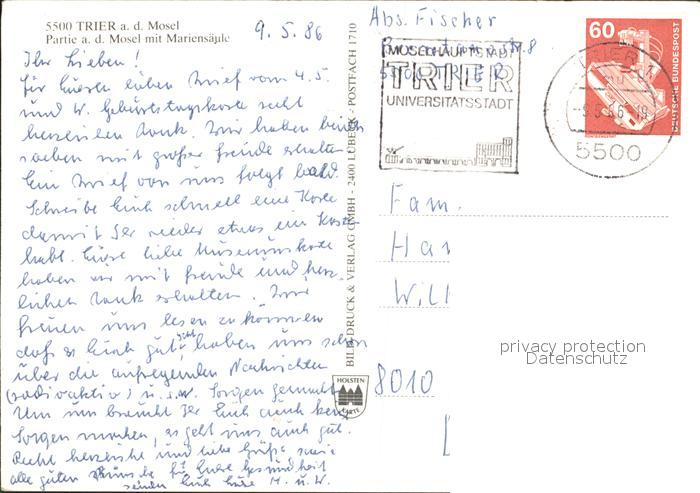 5500 TRIER a. d. Mosel
Partie a. d. Mosel mit Mariensäule
9. 5. 86
Ihr Lieben!
für Eueren lieben Brief vom 4.5.
und W. Geburtstagskarte recht
herzlichen Dank. Wir haben beides
soeben mit großer Freude erhalten.
Ein Brief von uns folgt bald.
Schreibe Euch schnell eine Karte
damit Ihr wieder etwas ein Karte
habt. Eure liebe Museumskarte
haben wir mit Freude und herz-
lichen Dank erhalten. Wir
freuen uns lesen zu können
daß es Euch gut haben uns schon
über die aufregenden Nachrichten
(radioaktiv) u.s.w. Sorgen gemacht
Um uns braucht Ihr Euch auch kein
Sorgen machen, es geht uns auch gut.
Recht herzliche und liebe Grüße sowie
alle guten Wünsche für Euere Gesundheit
senden Euch Eure H. u. W.
BILD & DRUCK & VERLAG GMBH · 2400 LÜBECK · POSTFACH 1710
HOLSTEN
KARTE
Abs. Fischer
MOSELHAUPTSTADT
TRIER
UNIVERSITÄTSSTADT
60
DEUTSCHE BUNDESPOST
5500
Fam.
Har
Will
8010
privacy protection
Datenschutz